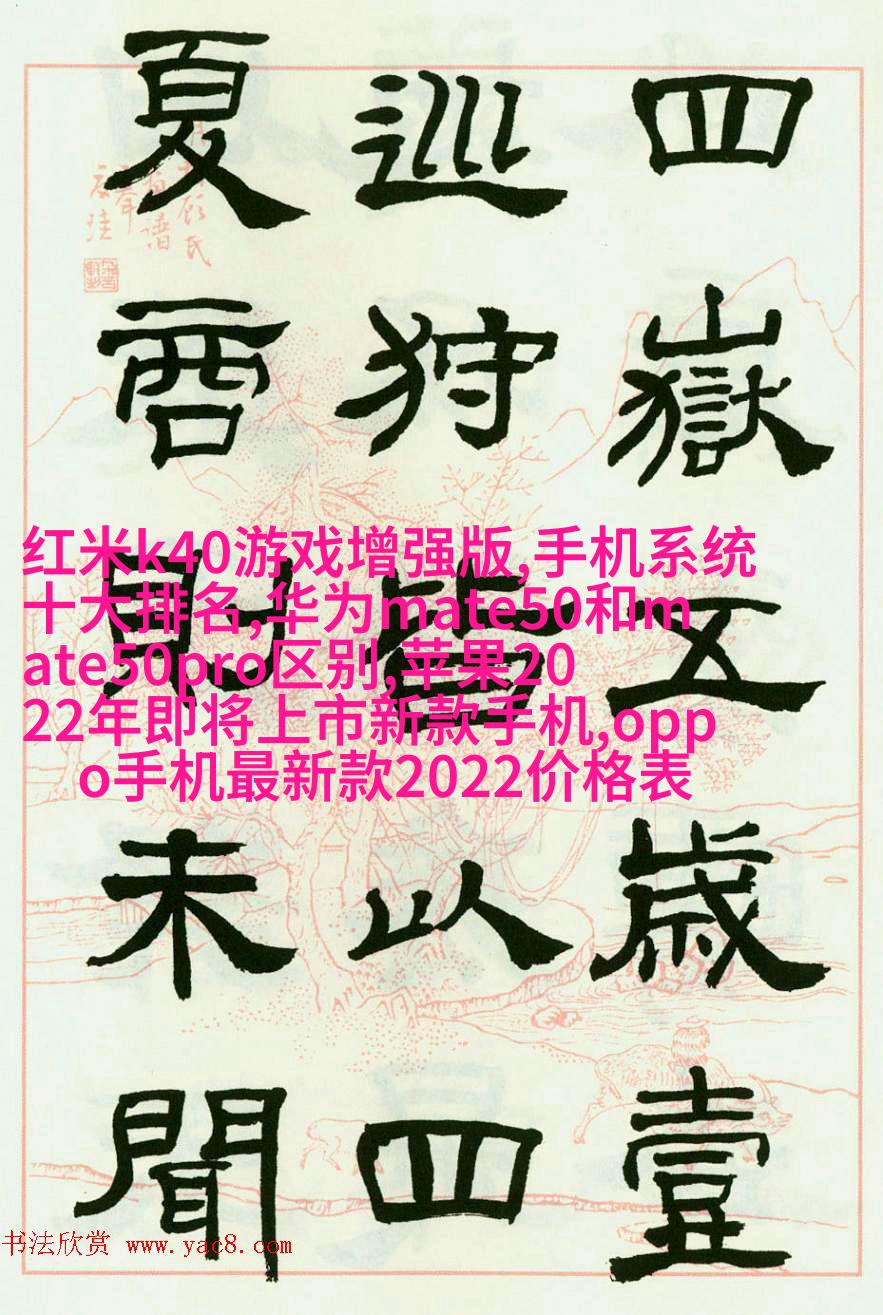 四嶽五歲壹
巡狩皆以四
夏商則未聞
红米k40游戏增强版,手机系统
十大排名,华为mate50和m
ate50pro区别,苹果20
22年即将上市新款手机,opp
o手机最新款2022价格表
书法欣赏 www.yac8.com